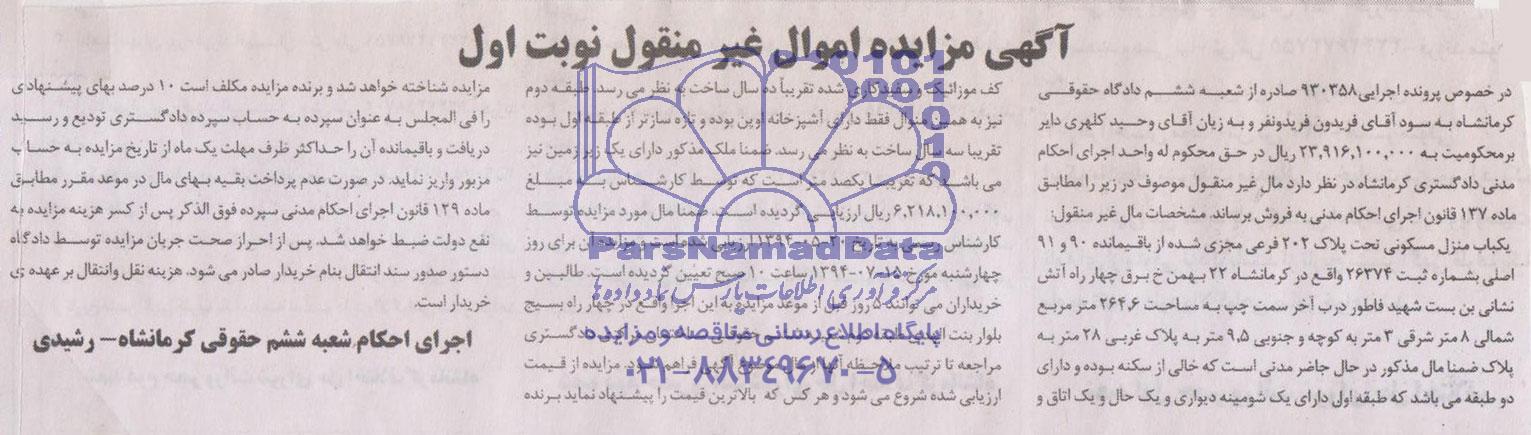 آگهی مزایده اموال غیر منقول نوبت اول
در خصوص پرونده اجرایی۹۳۰۳۵۸ صادره از شعبه ششم دادگاه حقوقی
کرمانشاه به سود آقای فریدون فریدونفر و به زیان آقای وحید کلهری دایر
برمحکومیت به ۲۳,۹۱۶,۱۰۰,۰۰۰ ریال در حق محکوم له واحد اجرای احکام
مدنی دادگستری کرمانشاه در نظر دارد مال غیر منقول موصوف در زیر را مطابق
ماده ۱۳۷ قانون اجرای احکام مدنی به فروش برساند. مشخصات مال غیر منقول:
یکباب منزل مسکونی تحت پلاک ۲۰۲ فرعی مجزی شده از باقیمانده ۹۰ و ۹۱
اصلی بشماره ثبت ۲۶۳۷۴ واقع در کرمانشاه ۲۲ بهمن خ برق چهار راه آتش
نشانی بن بست شهید فاطور درب آخر سمت چپ به مساحت ۲۶۴,۶ متر مربع
شمالی ۸ متر شرقی ۳ متر به کوچه و جنوبی ۹,۵ متر به پلاک غربی ۲۸ متر به
پلاک ضمنا مال مذکور در حال حاضر مدنی است که خالی از سکنه بوده و دارای
دو طبقه می باشد که طبقه اول دارای یک شومینه دیواری و یک حال و یک اتاق و
کف موزائیک و سفیدکاری شده تقریباً ده سال ساخت به نظر می رسد. طبقه دوم
نیز به همین منوال فقط دارای آشپزخانه اوپن بوده و تازه سازتر از طبقه اول بوده
تقریبا سه سال ساخت به نظر می رسد. ضمنا ملک مذکور دارای یک زیر زمین نیز
می باشد که تقریبا یکصد متر است که توسط کارشناس به مبلغ
۶,۲۱۸,۱۰۰,۰۰۰ ریال ارزیابی گردیده است. ضمنا مال مورد مزایده توسط
کارشناس رسمی به تاریخ ۲۰-۰۵-۱۳۹۴ ارزیابی شده است و مزایده آن برای روز
چهارشنبه مورخ ۱۵-۰۷-۱۳۹۴ ساعت ۱۰ صبح تعیین گردیده است. طالبین و
خریداران می توانند ۵ روز قبل از موعد مزایده به این اجرا واقع در چهار راه بسیج
بلوار بنت دادگستری
مراجعه تا ترتیب ملاحظه آنها از مال موضوع آگهی فراهم شود. مزایده از قیمت
ارزیابی شده شروع می شود و هر کس که بالاترین قیمت را پیشنهاد نماید برنده
مزایده شناخته خواهد شد و برنده مزایده مکلف است ۱۰ درصد بهای پیشنهادی
را فی المجلس به عنوان سپرده به حساب سپرده دادگستری تودیع و رسید
دریافت و باقیمانده آن را حداکثر ظرف مهلت یک ماه از تاریخ مزایده به حساب
مزبور واریز نماید. در صورت عدم پرداخت بقیه بهای مال در موعد مقرر مطابق
ماده ۱۲۹ قانون اجرای احکام مدنی سپرده فوق الذکر پس از کسر هزینه مزایده به
نفع دولت ضبط خواهد شد. پس از احراز صحت جریان مزایده توسط دادگاه
دستور صدور سند انتقال بنام خریدار صادر می شود. هزینه نقل وانتقال بر عهده ی
خریدار است.
اجرای احکام شعبه ششم حقوقی کرمانشاه- رشیدی
ParsNamadData
مرکز فرآوری اطلاعات پارس نماد داده‌ها
پایگاه اطلاع رسانی مناقصه و مزایده
۰۲۱-۸۸۳۴۹۶۷۰-۵